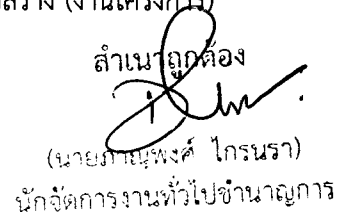 สว่าง (งานโครงการ)
สำเนาถูกต้อง
(นายภาณุพงศ์ ไกรนรา)
นักจัดการงานทั่วไปชำนาญการ